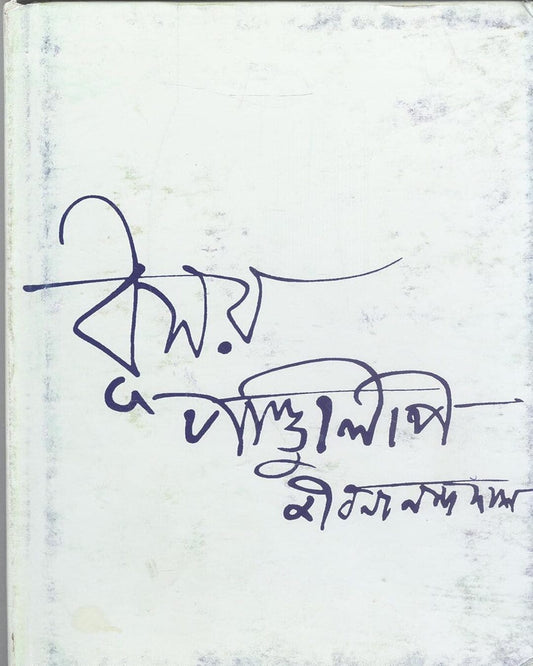 ধূসর
পাণ্ডুলিপি
জীবনানন্দ দাশ